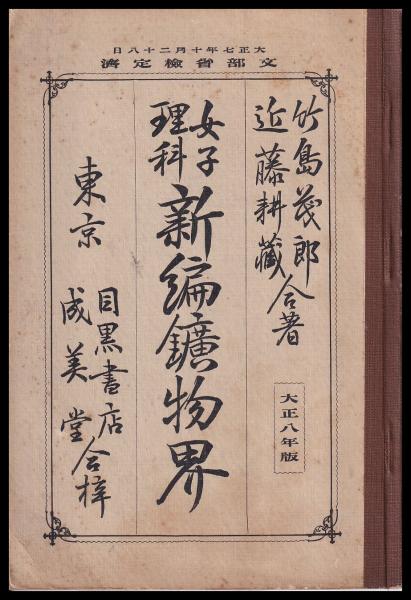 大正七年十月二十八日
文部省檢定濟
竹島茂郎
近藤耕藏
合著
大正八年版
女子
理科
新編鑛物界
東京
目黒書店
成美堂
合梓